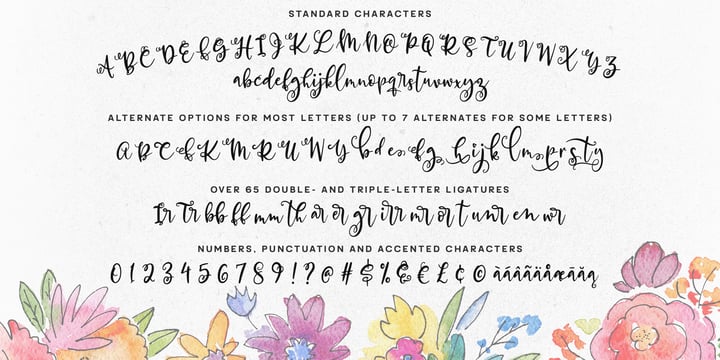 STANDARD CHARACTERS
A B C D E F G H I J K L M N O P Q R S T U V W X Y Z
abcdefghijklmnopqrstuvwxyz
ALTERNATE OPTIONS FOR MOST LETTERS (UP TO 7 ALTERNATES FOR SOME LETTERS)
A B C F K M R U W Y b d e f g h i j k l m p r s t y
OVER 65 DOUBLE- AND TRIPLE-LETTER LIGATURES
Ir Tr bb ff mm th ar er gr irr mr or t unr en wr
NUMBERS, PUNCTUATION AND ACCENTED CHARACTERS
0 1 2 3 4 5 6 7 8 9 ! ? @ # $ % & € £ ¢ © àáâãäåæāăą